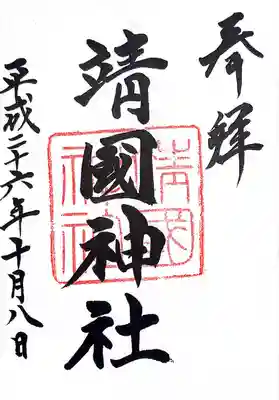 奉拝
靖國神社
平成二十六年十月八日
靖国神社